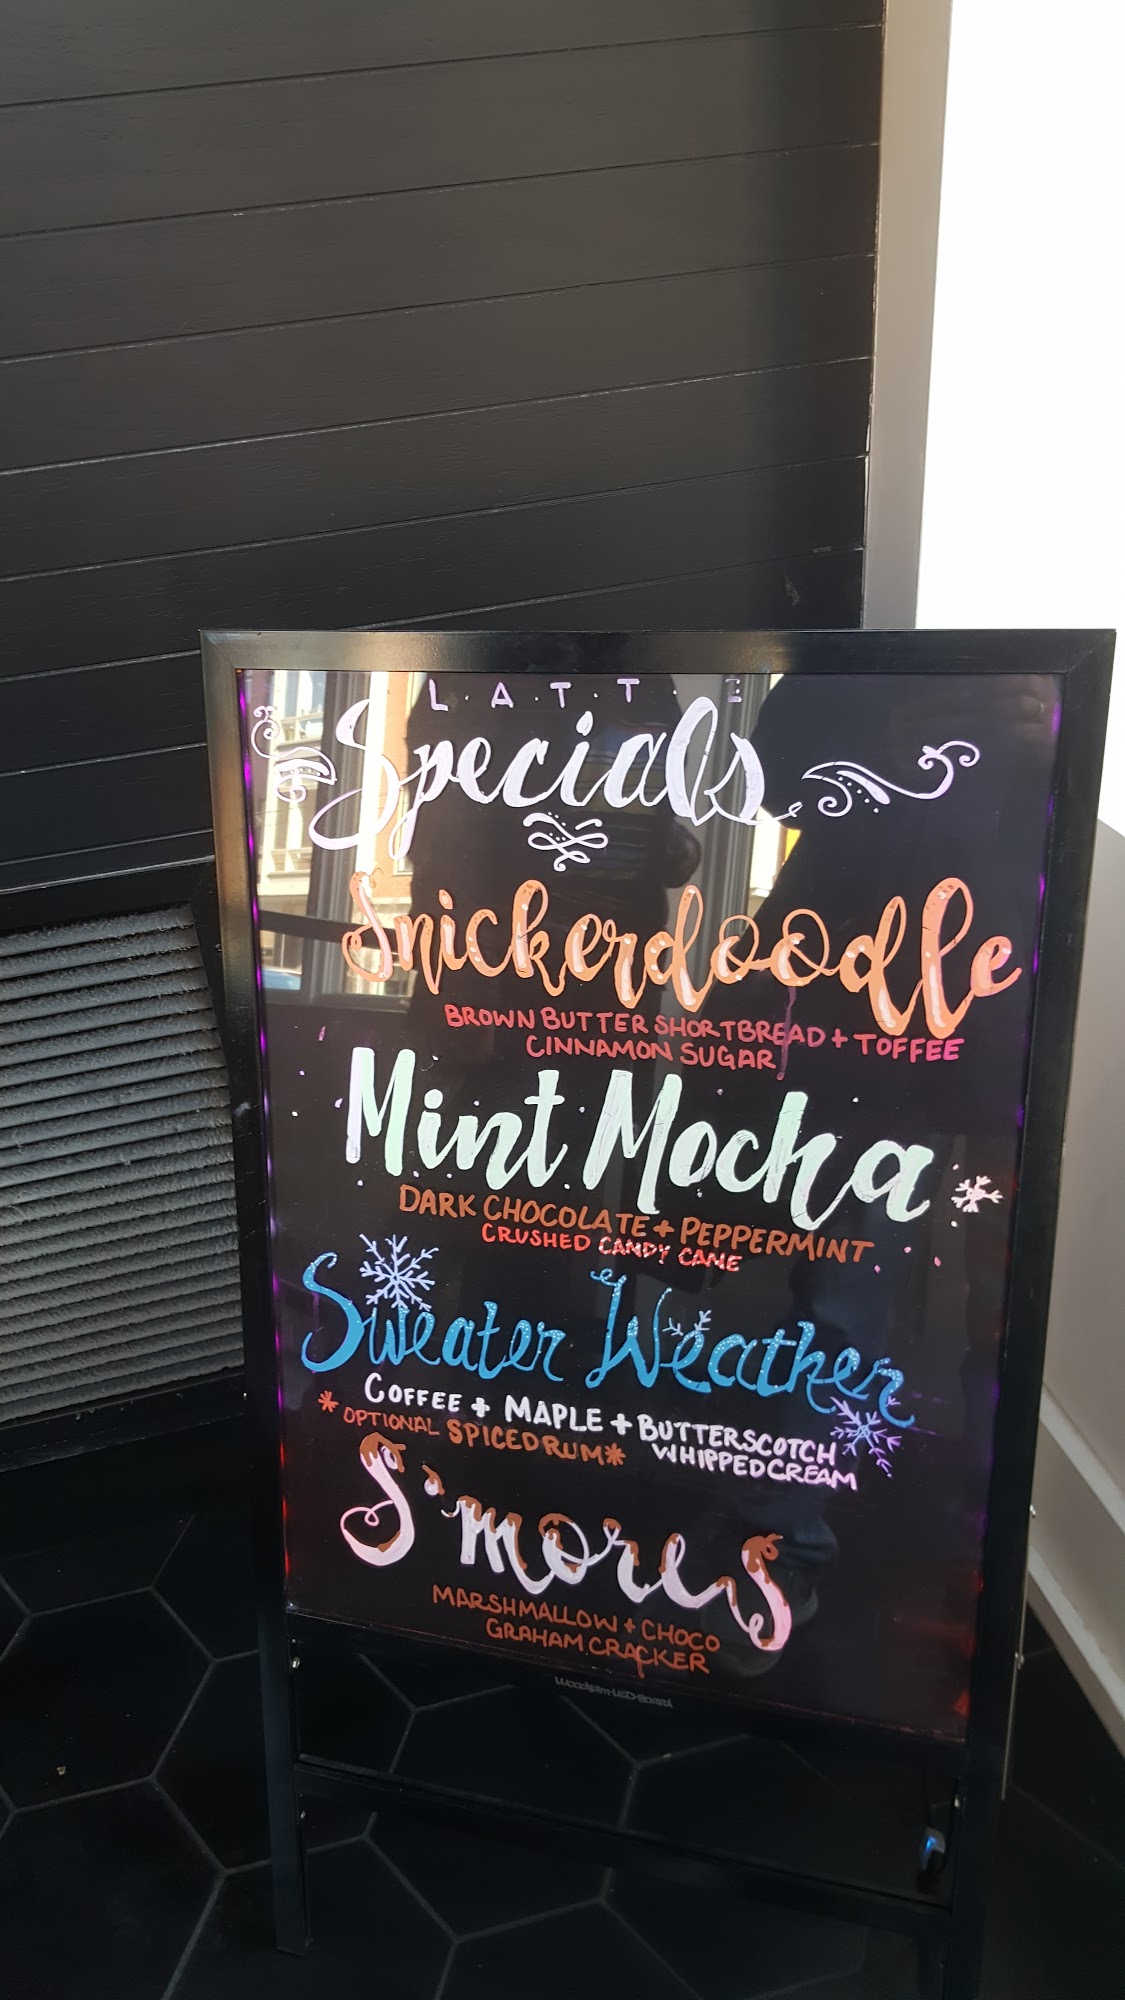 L·A·T·T·E
Specials
Snickerdoodle
BROWN BUTTER SHORTBREAD + TOFFEE
CINNAMON SUGAR
Mint Mocha
DARK CHOCOLATE + PEPPERMINT
CRUSHED CANDY CANE
Sweater Weather
COFFEE + MAPLE + BUTTERSCOTCH
WHIPPED CREAM
*OPTIONAL SPICED RUM*
S'mores
MARSHMALLOW + CHOCO
GRAHAM CRACKER